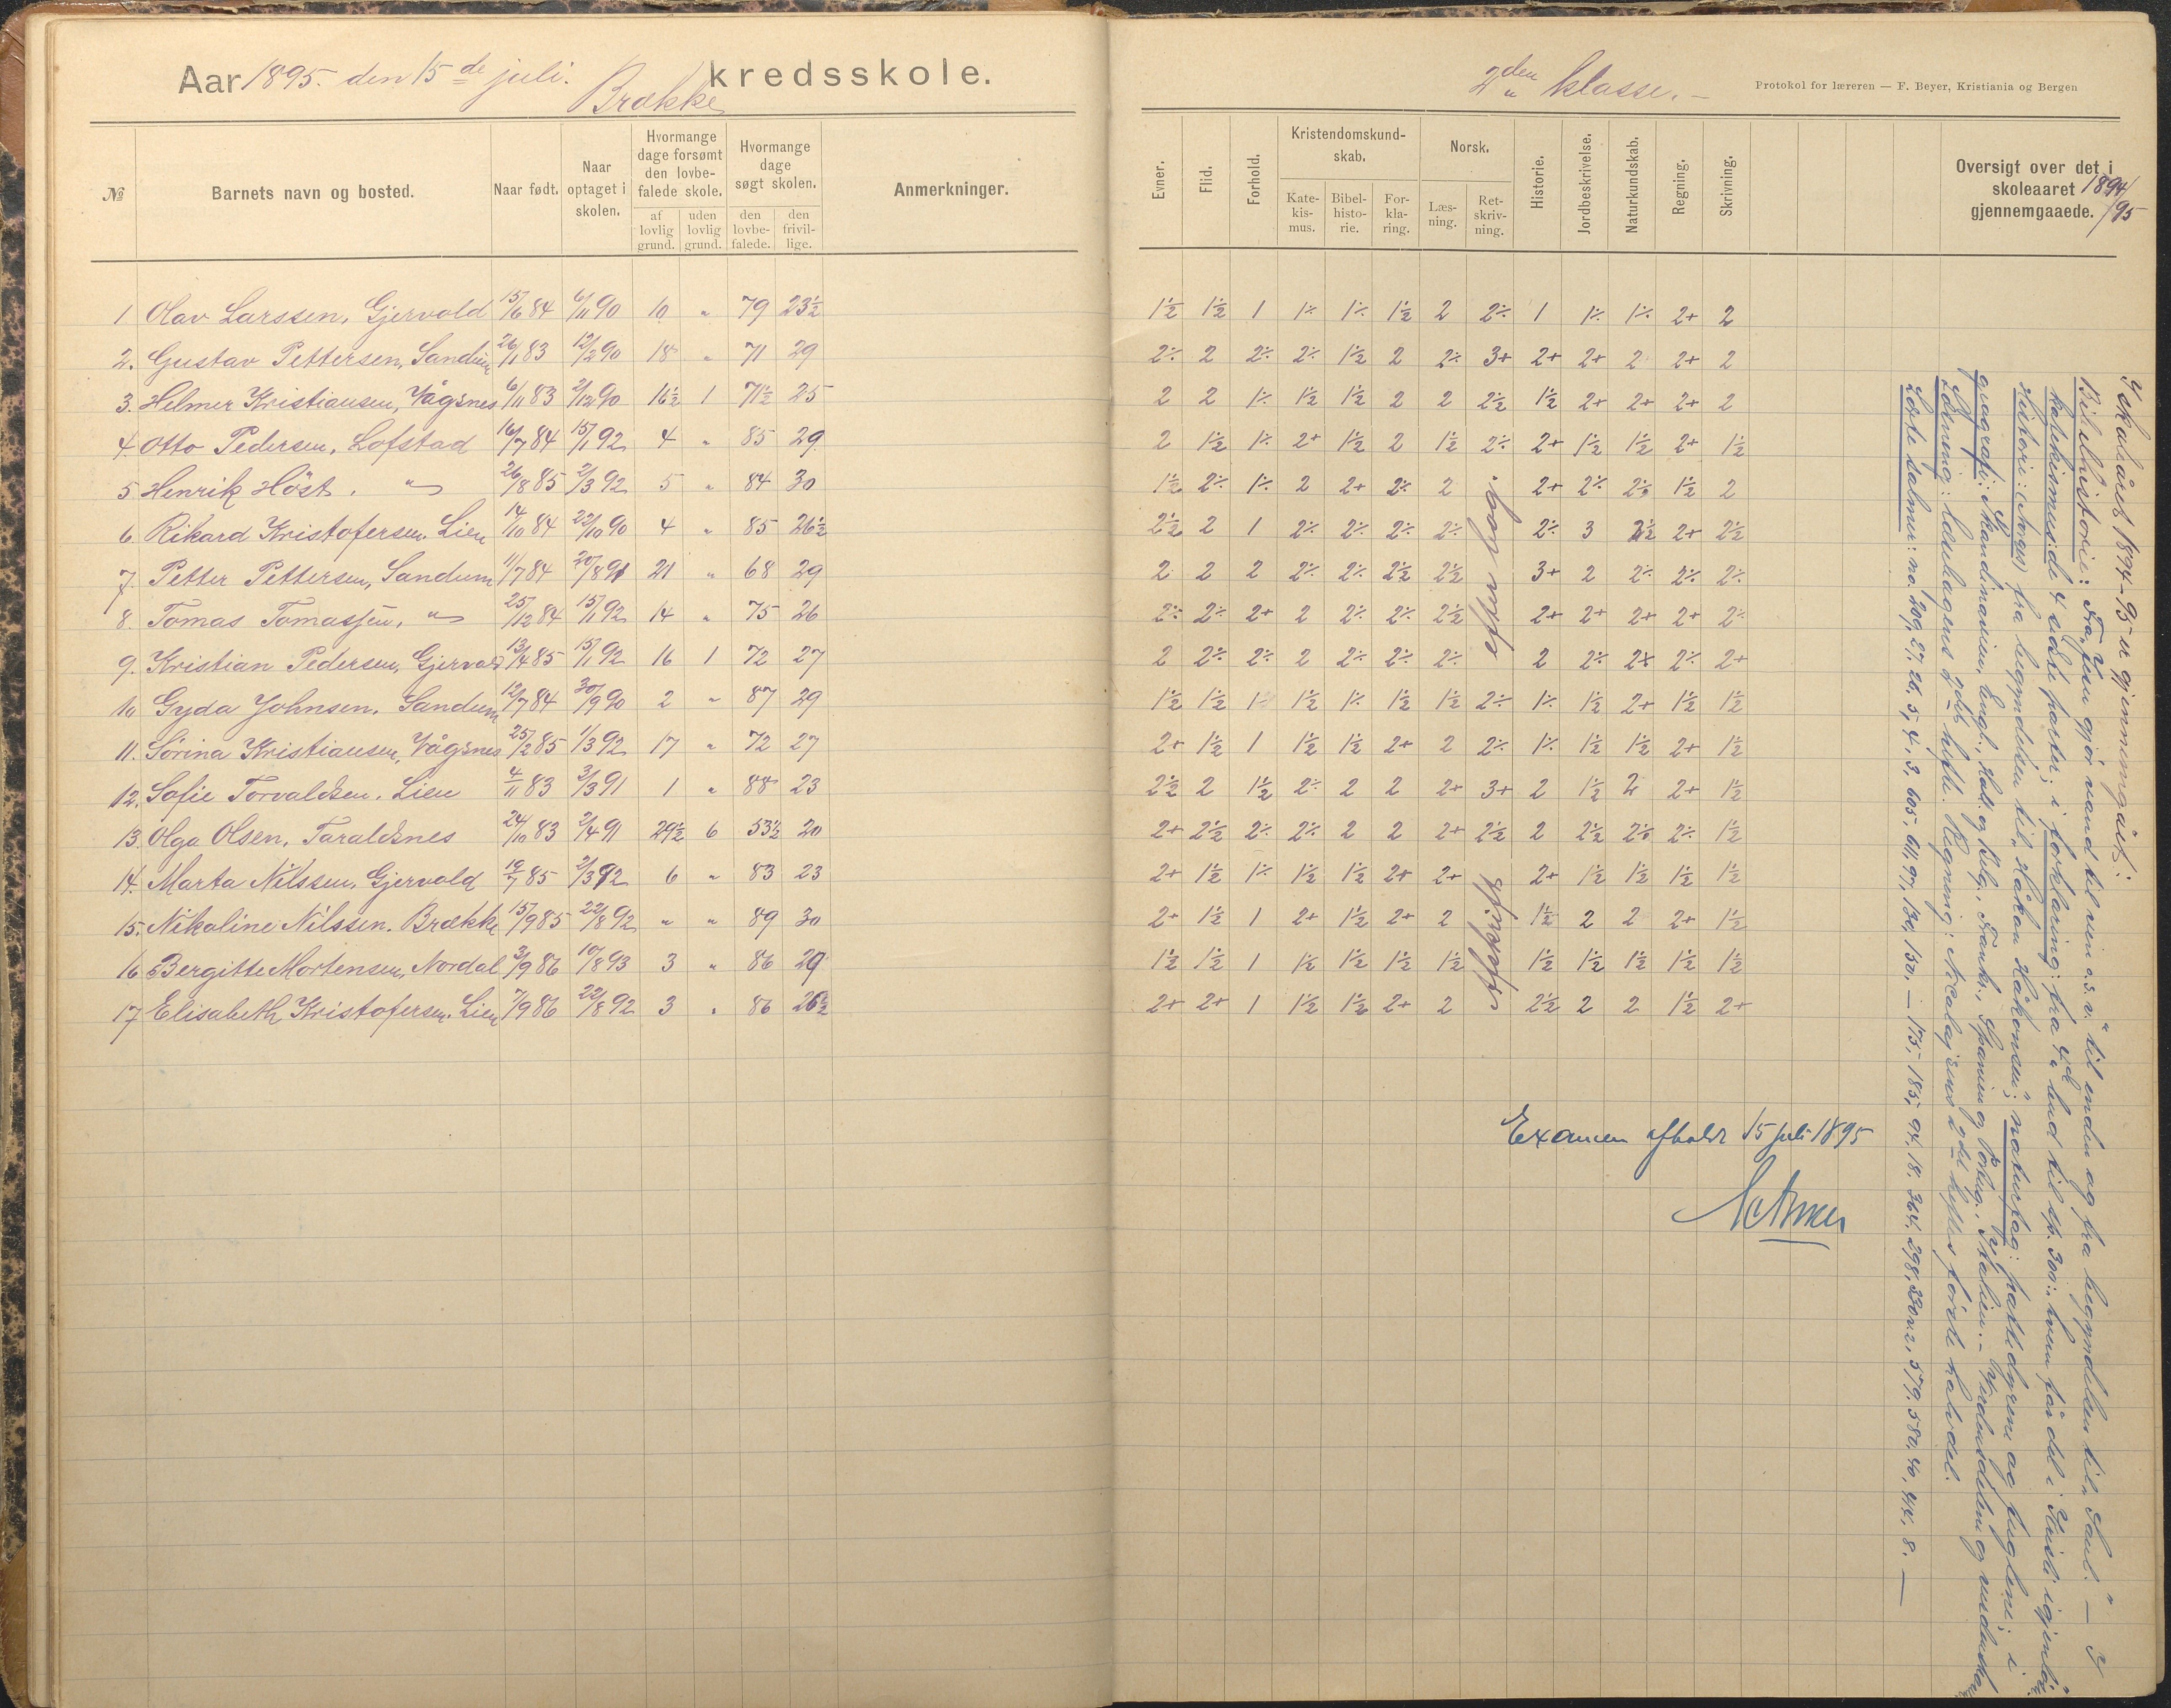 Aar 1895. den 15de juli. Brække kredsskole.
№ Barnets navn og bosted. Naar født. Naar optaget i skolen. Hvormange dage forsømt den lovbefalede skole. af lovlig grund. uden lovlig grund. Hvormange dage søgt skolen. den lovbefalede. den frivillige. Anmerkninger.
1 Olav Larssen, Gjervold 15/6 84 6/11 90 10 " 79 23½
2. Gustav Pettersen, Sandum 26/1 83 12/2 90 18 " 71 29
3. Helmer Kristiansen, Vågsnes 6/11 83 2/12 90 16½ 1 71½ 25
4 Otto Pedersen, Lofstad 16/7 84 15/1 92 4 " 85 29
5 Henrik Höst, " 26/8 85 2/3 92 5 " 84 30
6. Rikard Kristofersen. Lien 14/10 84 22/10 90 4 " 85 26½
7. Petter Pettersen, Sandum 11/7 84 20/8 91 21 " 68 29
8. Tomas Tomassen, " 25/12 84 15/1 92 14 " 75 26
9. Kristian Pedersen, Gjervold 13/4 85 15/1 92 16 1 72 27
10 Gyda Johnsen. Sandum 12/7 84 30/9 90 2 " 87 29
11. Sörina Kristiansen, Vågsnes 25/2 85 1/3 92 17 " 72 27
12. Sofie Torvaldsen. Lien 4/11 83 3/3 91 1 " 88 23
13. Olga Olsen, Taraldsnes 24/10 83 2/4 91 29½ 6 53½ 20
14. Marta Nilssen, Gjervold 19/7 85 2/3 92 6 " 83 23
15. Nikoline Nilssen. Brække 15/9 85 22/8 92 " " 89 30
16 Bergitte Mortensen, Nordal 3/9 86 19/8 93 3 " 86 29
17 Elisabeth Kristofersen. Lien 7/9 86 22/8 92 3 " 86 26½
2den klasse. –
Protokol for læreren — F. Beyer, Kristiania og Bergen
Evner. Flid. Forhold. Kristendomskundskab. Katekismus. Bibelhistorie. Forklaring. Norsk. Læsning. Retskrivning. Historie. Jordbeskrivelse. Naturkundskab. Regning. Skrivning. Oversigt over det i skoleaaret 1894/95 gjennemgaaede.
1½ 1½ 1 1÷ 1÷ 1½ 2 2÷ 1 1÷ 1÷ 2+ 2
2÷ 2 2÷ 2÷ 1½ 2 2÷ 3+ 2+ 2+ 2 2+ 2
2 2 1÷ 1½ 1½ 2 2 2½ 1½ 2+ 2+ 2+ 2
2 1½ 1÷ 2+ 1½ 2 1½ 2÷ 2+ 1½ 1½ 2+ 1½
1½ 2÷ 1÷ 2 2+ 2÷ 2 2+ 2÷ 2÷ 1½ 2
2½ 2 1 2÷ 2÷ 2÷ 2÷ 2÷ 3 2½ 2+ 2½
2 2 2 2÷ 2÷ 2½ 2½ 3+ 2 2÷ 2÷ 2÷
2÷ 2÷ 2+ 2 2÷ 2÷ 2½ 2+ 2+ 2+ 2+ 2÷
2 2÷ 2÷ 2 2÷ 2÷ 2÷ 2 2÷ 2+ 2÷ 2+
1½ 1½ 1 1½ 1÷ 1½ 1½ 2÷ 1÷ 1½ 2+ 1½ 1½
2+ 1½ 1 1½ 1½ 2+ 2 2÷ 1÷ 1½ 1½ 2+ 1½
2½ 2 1½ 2÷ 2 2 2+ 3+ 2 1½ 2 2+ 1½
2+ 2½ 2÷ 2÷ 2 2 2+ 2½ 2 2½ 2÷ 2÷ 1½
2+ 1½ 1÷ 1½ 1½ 2+ 2+ 2+ 1½ 1½ 1½ 1½
2+ 1½ 1 2+ 1½ 2+ 2 1½ 2 2 2+ 1½
1½ 1½ 1 1½ 1½ 1½ 1½ 1½ 1½ 1½ 1½ 1½
2+ 2+ 1 1½ 1½ 2+ 2 2½ 2 2 1½ 2+
after bog.
afskrift
Examen afholdt 15 juli 1895
I skoleåret 1894-95 er gjennemgået:
Bibelhistorie: Fra „Jesu gjör vand til vin o.s.v." til enden og fra begyndelsen til „Saul." — I
katekismus: de 4 sidste parter; i forklaring: fra 4de bud til sp. 300:
historie: (norges) fra begyndelsen til „Håkon Håkonsen;" naturfag: pattedyrene og fuglene; i
geografi: Skandinavien, Engl., Holl. og Belg., Frankr., Spanien og Portug., Italien. – Verdensdelene og verdenshavene.
Læsning: læsebogens 2det hefte. Regning: 2det heftes förste halvdel.
Lærte salmer: no. 209, 27, 26, 5, 4, 3, 605, 611, 97, 130, 150. — 175, 185, 94, 18, 364, 298, 230 v. 2, 579, 580, 46, 414, 8. —